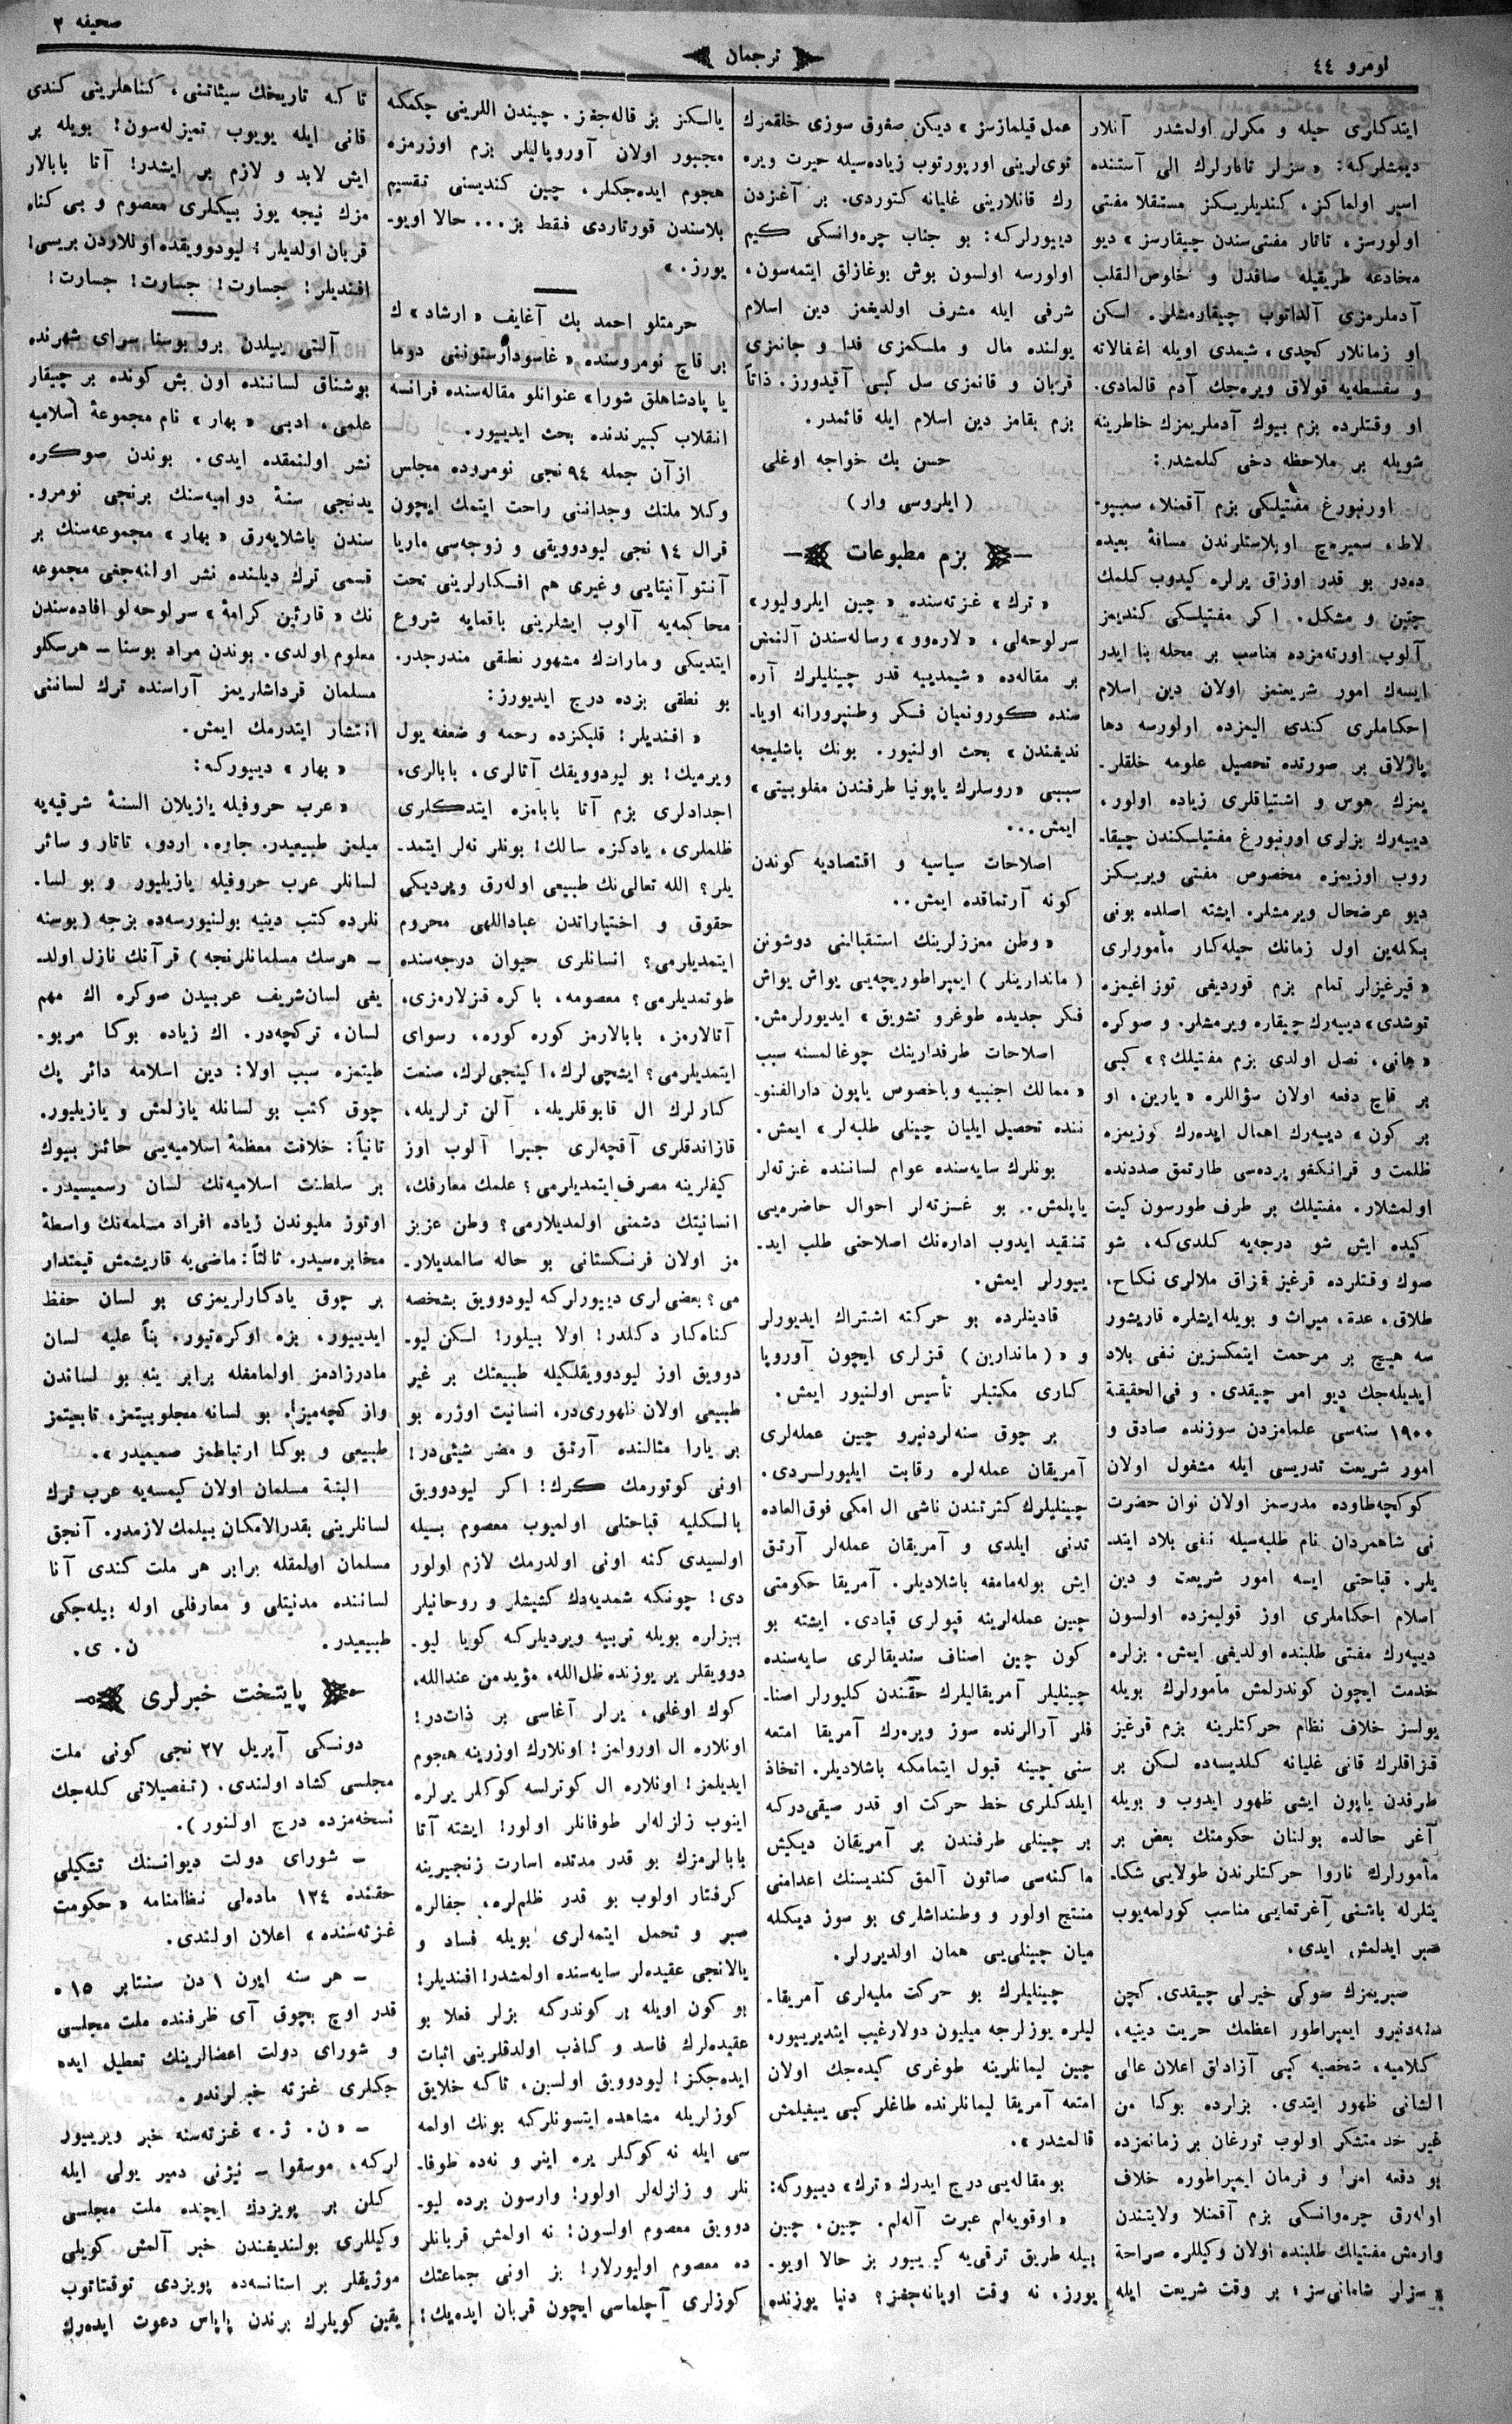 نومرو ٤٤
ترجمان
صحيفه ٢
ايتدكلرى حيله و مكرلر اولمشدر آنلار
ديمشلركه: «سزلر تاتارلرك الى آستنده
اسير اولماكز، كنديلريكز مستقلا مفتى
اولورسز، تاتار مفتى‌سندن چيقارسز» ديو
مخادعه طريقيله صافدل و خلوص‌القلب
آدملرمزى آلداتوب چيقارمشلر. لكن
او زمانلار كچدى، شيمدى اويله اغفالاته
و سفسطه‌يه قولاق ويره‌جك آدم قالمادى.
او وقتلرده بزم بيوك آدملريمزك خاطرينه
شويله بر ملاحظه دخى كلمشدر:
اورنبورغ مفتيلكى بزم آقمنلا، سميپو-
لاط، سميره‌چ اوبلاستلرندن مسافهٔ بعيده
ده‌در بو قدر اوزاق يرلره كيدوب كلمك
چتين و مشكل. اكر مفتيلكى كنديمز
آلوب اورته‌مزده مناسب بر محله بنا ايدر
ايسه‌ك امور شريعتمز اولان دين اسلام
احكاملرى كندى اليمزده اولورسه دها
پارلاق بر صورتده تحصيل علومه خلقلر-
يمزك هوس و اشتياقلرى زياده اولور،
دييه‌رك بزلرى اورنبورغ مفتيلكندن چيقا-
روب اوزيمزه مخصوص مفتى ويريكز
ديو عرضحال ويرمشلر. ايشته اصلده بونى
بكلمه‌ين اول زمانك حيله‌كار مأمورلرى
«قيرغيزلر تمام بزم قورديغى توزاغيمزه
توشدى» دييه‌رك چيقاره ويرمشلر. و صوكره
«هانى، نصل اولدى بزم مفتيلك؟» كبى
بر قاچ دفعه اولان سؤاللره «يارين، او
بر كون» دييه‌رك اهمال ايده‌رك كوزيمزه
ظلمت و قرانكغو پرده‌سى طارتمق صددنده
اولمشلار. مفتيلك بر طرف طورسون كيت
كيده ايش شو درجه‌يه كلدى‌كه، شو
صوك وقتلرده قرغيز قزاق ملالرى نكاح،
طلاق، عدة، ميراث و بويله ايشلره قاريشور
سه هيچ بر مرحمت ايتمكسزين نفى بلاد
ايديله‌جك ديو امر چيقدى. و فى‌الحقيقة
١٩٠٠ سنه‌سى علمامزدن سوزنده صادق و
امور شريعت تدريسى ايله مشغول اولان
كوكچه‌طاوده مدرسمز اولان نوان حضرت
نى شاهمردان نام طلبه‌سيله نفى بلاد ايتد-
يلر. قباحتى ايسه امور شريعت و دين
اسلام احكاملرى اوز قوليمزده اولسون
دييه‌رك مفتى طلبنده اولديغى ايمش. بزلره
خدمت ايچون كوندرلمش مأمورلرك بويله
يولسز خلاف نظام حركتلرينه بزم قرغيز
قزاقلرك قانى غليانه كلديسه‌ده لكن بر
طرفدن ياپون ايشى ظهور ايدوب و بويله
آغر حالده بولنان حكومتك بعض بر
مأمورلرك ناروا حركتلرندن طولايى شكا-
يتلرله باشنى آغرتمايى مناسب كورلمه‌يوب
صبر ايدلمش ايدى.
صبريمزك صوكى خيرلى چيقدى. كچن
سنه‌دنبرو ايمپراطور اعظمك حريت دينيه،
كلاميه، شخصيه كبى آزادلق اعلان عالى
الشانى ظهور ايتدى. بزلرده بوكا من
غير حد متشكر اولوب تورغان بر زمانمزده
بو دفعه امرا و فرمان ايمپراطوره خلاف
اوله‌رق چره‌وانسكى بزم آقمنلا ولايتندن
وارمش مفتيلك طلبنده اولان وكيللره صراحة
«سزلر شامانى‌سز؛ بر وقت شريعت ايله
عمل قيلمازسز» ديكن صغوق سوزى خلقمزك
توى‌لرينى اورپورتوب زياده‌سيله حيرت ويره
رك قانلارينى غليانه كتوردى. بر آغزدن
دييورلركه: بو جناب چره‌وانسكى كيم
اولورسه اولسون بوش بوغازلق ايتمه‌سون،
شرفى ايله مشرف اولديغمز دين اسلام
يولنده مال و ملكمزى فدا و جانمزى
قربان و قانمزى سل كبى آقيدورز. ذاتاً
بزم بقامز دين اسلام ايله قائمدر.
حسن بك خواجه اوغلى
(ايلروسى وار)
بزم مطبوعات
«ترك» غزته‌سنده «چين ايلروليور»
سرلوحه‌لى، «لاره‌وو» رساله‌سندن آلنمش
بر مقاله‌ده «شيمدييه قدر چينليلرك آره
سنده كورونميان فكر وطنپرورانه اويا-
نديغندن» بحث اولنيور. بونك باشليجه
سببى «روسلرك ياپونيا طرفندن مغلوبيتى»
ايمش...
اصلاحات سياسيه و اقتصاديه كوندن
كونه آرتماقده ايمش..
«وطن معززلرينك استقبالنى دوشونن
(ماندارينلر) ايمپراطوريچه‌يى يواش يواش
فكر جديده طوغرو تشويق» ايديورلرمش.
اصلاحات طرفدارينك چوغالمسنه سبب
«ممالك اجنبيه و باخصوص ياپون دارالفنو-
ننده تحصيل ايليان چينلى طلبه‌لر» ايمش.
بونلرك سايه‌سنده عوام لساننده غزته‌لر
ياپلمش. بو غزته‌لر احوال حاضره‌يى
تنقيد ايدوب اداره‌نك اصلاحنى طلب ايد-
ييورلر ايمش.
قادينلرده بو حركته اشتراك ايديورلر
و «(ماندارين) قزلرى ايچون آوروپا
كنارى مكتبلر تأسيس اولنيور ايمش.
بر چوق سنه‌لردنبرو چين عمله‌لرى
آمريقان عمله‌لره رقابت ايليورلردى.
چينليلرك كثرتندن ناشى ال امكى فوق‌العاده
تدنى ايلدى و آمريقان عمله‌لر آرتق
ايش بوله‌مامغه باشلاديلر. آمريقا حكومتى
چين عمله‌لرينه قپولرى قپادى. ايشته بو
كون چين اصناف سنديقالرى سايه‌سنده
چينليلر آمريقاليلرك حقندن كليورلر اصنا-
فلر آرالرنده سوز ويره‌رك آمريقا امتعه
سنى چينه قبول ايتمامكه باشلاديلر. اتخاذ
ايلدكلرى خط حركت او قدر صيقى‌دركه
بر چينلى طرفندن بر آمريقان ديكيش
ماكنه‌سى صاتون آلمق كنديسنك اعدامنى
منتج اولور و وطنداشلرى بو سوز ديكله
ميان چينلى‌يى همان اولديررلر.
چينليلرك بو حركت مليه‌لرى آمريقا-
ليلره يوزلرجه ميليون دولارغيب ايتديرييور،
چين ليمانلرينه طوغرى كيده‌جك اولان
امتعه آمريقا ليمانلرنده طاغلر كبى ييغيلمش
قالمشدر».
بو مقاله‌يى درج ايدرك «ترك» دييوركه:
«اوقويه‌لم عبرت آله‌لم. چين، چين
بيله طريق ترقى‌يه كيرييور بز حالا اويو-
يورز، نه وقت اويانه‌جغز؟ دنيا يوزنده
يالكز بز قاله‌جغز. چيندن اللرينى چكمكه
مجبور اولان آوروپاليلر بزم اوزرمزه
هجوم ايده‌جكلر، چين كنديسنى تقسيم
بلاسندن قورتاردى فقط بز... حالا اويو-
يورز.»
حرمتلو احمد بك آغايف «ارشاد»ك
بر قاچ نومروسنده «غاسودارستوننى دوما
يا پادشاهلق شورا» عنوانلو مقاله‌سنده فرانسه
انقلاب كبيرندنده بحث ايدييور.
ازآن جمله ٩٤ نجى نومروده مجلس
وكلا ملتك وجداننى راحت ايتمك ايچون
قرال ١٤ نجى ليودوويقى و زوجه‌سى ماريا
آنتوآنيتايى وغيرى هم افكارلرينى تحت
محاكمه‌يه آلوب ايشلرينى باقمايه شروع
ايتديكى و مارات‌ك مشهور نطقى مندرجدر.
بو نطقى بزده درج ايديورز:
«افنديلر! قلبكزده رحمه و ضعفه يول
ويرميك! بو ليودوويقك آتالرى، بابالرى،
اجدادلرى بزم آتا بابامزه ايتدكلرى
ظلملرى، يادكزه سالك! بونلر نه‌لر ايتمد-
يلر؟ الله تعالى‌نك طبيعى اوله‌رق ويرديكى
حقوق و اختياراتدن عباداللهى محروم
ايتمديلرمى؟ انسانلرى حيوان درجه‌سنده
طوتمديلرمى؟ معصومه، باكره قزلارمزى،
آتالارمز، بابالارمز كوره كوره، رسواى
ايتمديلرمى؟ ايشچى‌لرك، اكينجى‌لرك، صنعت
كارلرك ال قابوقلريله، آلن ترلريله،
قازاندقلرى آقچه‌لرى جبرا آلوب اوز
كيفلرينه مصرف ايتمديلرمى؟ علمك معارفك،
انسانيتك دشمنى اولمديلارمى؟ وطن عزيز
مز اولان فرنكستانى بو حاله سالمديلار-
مى؟ بعضى‌لرى دييورلركه ليودوويق بشخصه
كناه‌كار دكلدر! اولا بيلور! لكن ليو-
دوويق اوز ليودوويقلكيله طبيعتك بر غير
طبيعى اولان ظهورى‌در، انسانيت اوزره بو
بر يارا مثالنده آرتق و مضر شيئى‌در!
اونى كوتورمك كرك! اكر ليودوويق
بالكليه قباحتلى اولميوب معصوم بيله
اولسيدى كنه اونى اولدرمك لازم اولور
دى! چونكه شمديه‌دك كشيشلر و روحانيلر
بيزلره بويله تربيه ويرديلركه كويا ليو-
دوويقلر ير يوزنده ظل‌الله، مؤيد من عندالله،
كوك اوغلى، يرلر آغاسى بر ذات‌در!
اونلاره ال اوروامز! اونلارك اوزرينه هجوم
ايديلمز! اونلاره ال كوترلسه كوكلر يرلره
اينوب زلزله‌لر طوفانلر اولور! ايشته آتا
بابالرمزك بو قدر مدتده اسارت زنجيرينه
كرفتار اولوب بو قدر ظلم‌لره، جفالره
صبر و تحمل ايتمه‌لرى بويله فساد و
يالانجى عقيده‌لر سايه‌سنده اولمشدر! افنديلر!
بو كون اويله بر كوندركه بزلر فعلا بو
عقيده‌لرك فاسد و كاذب اولدقلرينى اثبات
ايده‌جكز! ليودوويق اولسين، تاكه خلايق
كوزلريله مشاهده ايتسونلركه بونك اولمه
سى ايله نه كوكلر يره اينر و نه‌ده طوفا-
نلر و زلزله‌لر اولور! وارسون برده ليو-
دوويق معصوم اولسون! نه اولمش قربانلر
ده معصوم اوليورلار! بز اونى جماعتك
كوزلرى آچلماسى ايچون قربان ايده‌يك!
تا كه تاريخك سيئاتنى، كناهلرينى كندى
قانى ايله يويوب تميزله‌سون! بويله بر
ايش لابد و لازم بر ايشدر! آتا بابالار
مزك نيجه يوز بيكلرى معصوم و بى كناه
قربان اولديلر! ليودوويقده اونلاردن بريسى!
افنديلر! جسارت! جسارت! جسارت!
آلتى ييلدن برو بوسنا سراى شهرنده
بوشناق لساننده اون بش كونده بر چيقار
علمى، ادبى «بهار» نام مجموعهٔ اسلاميه
نشر اولنمقده ايدى. بوندن صوكره
يدنجى سنهٔ دواميه‌سنك برنجى نومرو-
سندن باشلايه‌رق «بهار» مجموعه‌سنك بر
قسمى ترك ديلنده نشر اولنه‌جغى مجموعه
نك «قارئين كرامهٔ» سرلوحه‌لو افاده‌سندن
معلوم اولدى. بوندن مراد بوسنا ـ هرسكلو
مسلمان قرداشلريمز آراسنده ترك لساننى
انتشار ايتدرمك ايمش.
«بهار» دييوركه:
«عرب حروفيله يازيلان السنهٔ شرقيه‌يه
ميلمز طبيعيدر. جاوه، اردو، تاتار و سائر
لسانلر عرب حروفيله يازيليور و بو لسا-
نلرده كتب دينيه بولنيورسه‌ده بزجه (بوسنه
ـ هرسك مسلمانلرنجه) قرآنك نازل اولد-
يغى لسان‌شريف عربيدن صوكره اك مهم
لسان، تركچه‌در. اك زياده بوكا مربو-
طيتمزه سبب اولا: دين اسلامه دائر پك
چوق كتب بو لسانله يازلمش و يازيليور.
ثانياً: خلافت معظمهٔ اسلاميه‌يى حائز بيوك
بر سلطنت اسلاميه‌نك لسان رسميسيدر.
اوتوز مليوندن زياده افراد مسلمه‌نك واسطهٔ
مخابره‌سيدر. ثالثاً: ماضى‌يه قاريشمش قيمتدار
بر چوق يادكارلريمزى بو لسان حفظ
ايدييور، بزه اوكره‌تيور. بناً عليه لسان
مادرزادمز اولمامغله برابر ينه بو لساندن
واز كچه‌ميز!. بو لسانه مجلوبيتمز، تابعيتمز
طبيعى و بوكا ارتباطمز صميميدر».
البتة مسلمان اولان كيمسه‌يه عرب ترك
لسانلرينى بقدرالامكان بيلمك لازمدر. آنجق
مسلمان اولمقله برابر هر ملت كندى آنا
لساننده مدنيتلى و معارفلى اوله بيله‌جكى
طبيعيدر.
ن. ى.
پايتخت خبرلرى
دونكى آپريل ٢٧ نجى كونى ملت
مجلسى كشاد اولندى. (تفصيلاتى كله‌جك
نسخه‌مزده درج اولنور).
ـ شوراى دولت ديوانسنك تشكيلى
حقنده ١٢٤ ماده‌لى نظامنامه «حكومت
غزته‌سنده» اعلان اولندى.
ـ هر سنه ايون ١ دن سنتابر ١٥ ه
قدر اوچ بچوق آى ظرفنده ملت مجلسى
و شوراى دولت اعضالرينك تعطيل ايده
جكلرى غزته خبرلرندو.
ـ «ن. ژ.» غزته‌سنه خبر ويرييور
لركه، موسقوا ـ نيژنى دمير يولى ايله
كلن بر پويزدك ايچنده ملت مجلسى
وكيللرى بولنديغندن خبر آلمش كويلى
موژيقلر بر استانسه‌ده پويزدى توقتاتوب
يقين كويلرك برندن پاپاس دعوت ايده‌رك